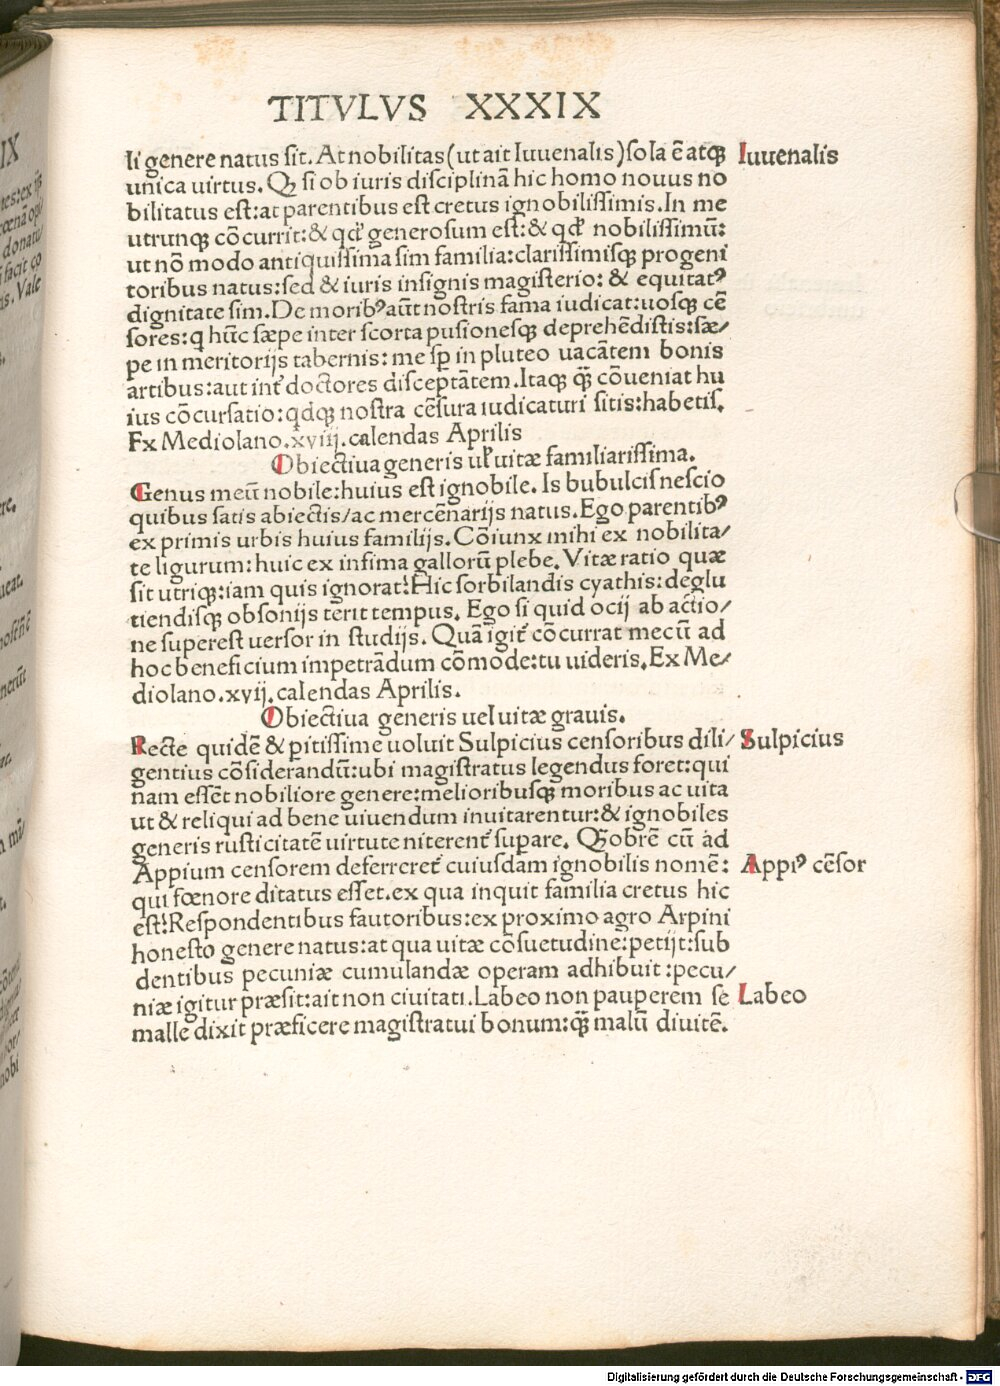 TITVLVS XXXIX
li genere natus sit. At nobilitas (ut ait Iuuenalis) sola ē atqꝫ
Iuuenalis
unica uirtus. Qꝫ si ob iuris disciplinā hic homo nouus no
bilitatus est: at parentibus est cretus ignobilissimis. In me
utrunqꝫ cōcurrit: & qđ generosum est: & qđ nobilissimū:
ut nō modo antiquissima sim familia: clarissimisqꝫ progeni
toribus natus: sed & iuris insignis magisterio: & equitatꝰ
dignitate sim. De moribꝰ aūt nostris fama iudicat: uosqꝫ cē
sores: q hūc sæpe inter scorta pusionesqꝫ deprehēdistis: sæ/
pe in meritorijs tabernis: me sꝑ in pluteo uacātem bonis
artibus: aut int̄ doctores disceptātem. Itaqꝫ qꝫ̄ cōueniat hu
ius cōcursatio: qdqꝫ nostra cēsura iudicaturi sitis: habetis.
Ex Mediolano. xviij. calendas Aprilis
Obiectiua generis ul' uitæ familiarissima.
Genus meū nobile: huius est ignobile. Is bubulcis nescio
quibus satis abiectis/ ac mercēnarijs natus. Ego parentibꝰ
ex primis urbis huius familijs. Cōiunx mihi ex nobilita/
te ligurum: huic ex infima gallorū plebe. Vitæ ratio quæ
sit utriqꝫ: iam quis ignorat? Hic sorbilandis cyathis: deglu
tiendisqꝫ obsonijs tērit tempus. Ego si quid ocij ab actio/
ne superest uersor in studijs. Quā igit̄ cōcurrat mecū ad
hoc beneficium impetrādum cōmode: tu uideris. Ex Me/
diolano. xvij. calendas Aprilis.
Obiectiua generis uel uitæ grauis.
Recte quidē & ꝑitissime uoluit Sulpicius censoribus dili/
Sulpicius
gentius cōsiderandū: ubi magistratus legendus foret: qui
nam essēt nobiliore genere: melioribusqꝫ moribus ac uita
ut & reliqui ad bene uiuendum inuitarentur: & ignobiles
generis rusticitatē uirtute niterent̄ suꝑare. Qꝫobrē cū ad
Appium censorem deferreret̄ cuiusdam ignobilis nomē:
Appiꝰ cēsor
qui fœnore ditatus esset. ex qua inquit familia cretus hic
est? Respondentibus fautoribus: ex proximo agro Arpini
honesto genere natus: at qua uitæ cōsuetudine: petijt: sub
dentibus pecuniæ cumulandæ operam adhibuit: pecu/
niæ igitur præsit: ait non ciuitati. Labeo non pauperem se
Labeo
malle dixit præficere magistratui bonum: qꝫ̄ malū diuitē.
Digitalisierung gefördert durch die Deutsche Forschungsgemeinschaft - DFG